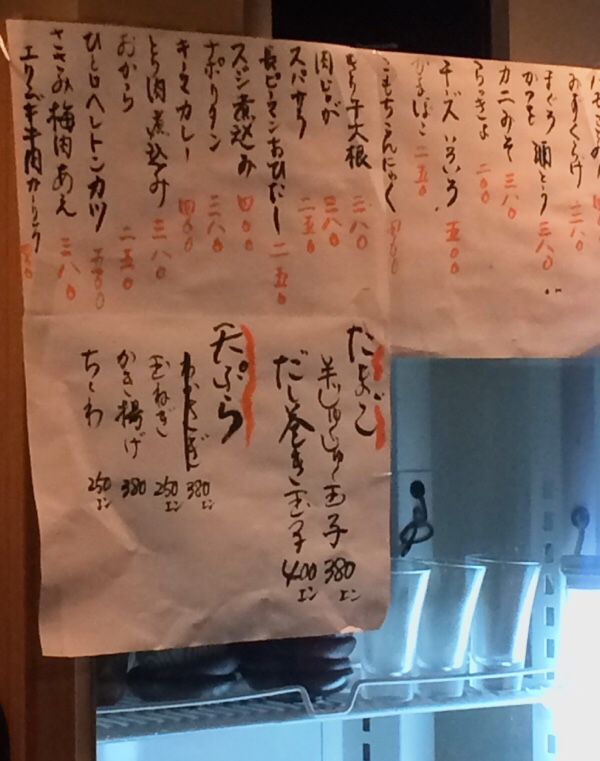 みずくらげ 三八〇
まぐろ 酒とう
かつを 三八〇
カニみそ 三八〇
らっきょ 二〇〇
チーズいろいろ 五〇〇
かまぼこ 二五〇
こもちこんにゃく 四〇〇
切り干大根 三八〇
肉じゃが 三八〇
スパサラ 二五〇
長ピーマンおひたし 二五〇
スジ煮込み 四〇〇
ナポリタン 三八〇
キーマカレー 四〇〇
とり肉煮込み 三八〇
おから 二五〇
ひと口ヘレトンカツ 五〇〇
ささみ梅肉あえ 三八〇
エリンギ牛肉ガーリック
たまご
半じゅくじゅく玉子 380エン
だし巻き玉子 400エン
天ぷら
380エン
玉ねぎ 250エン
かき揚げ 380
ちくわ 250エン